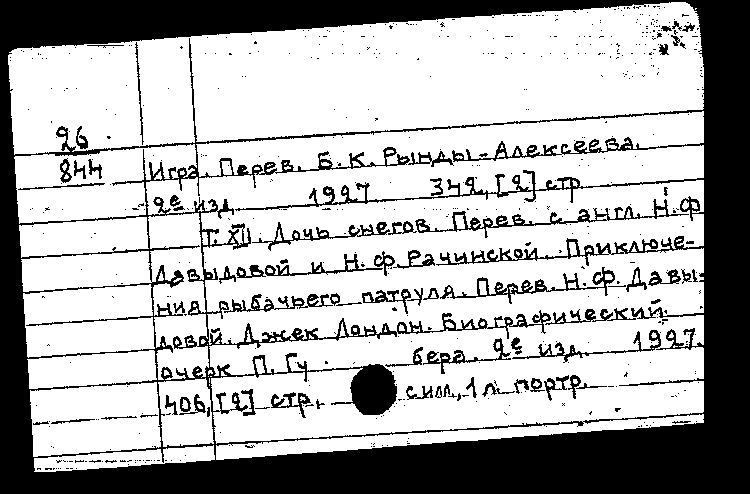 26
844
Игра. Перев. Б. К. Рынды-Алексеева.
2е изд. 1927 342, [2] стр
Т. XII. Дочь снегов. Перев. с англ. Н. Ф
Давыдовой и Н. Ф. Рачинской. Приключе-
ния рыбачьего патруля. Перев. Н. Ф. Давы-
довой. Джек Лондон. Биографический
очерк П. Гу бера. 2е изд. 1927.
406, [2] стр. с илл., 1 л. портр.